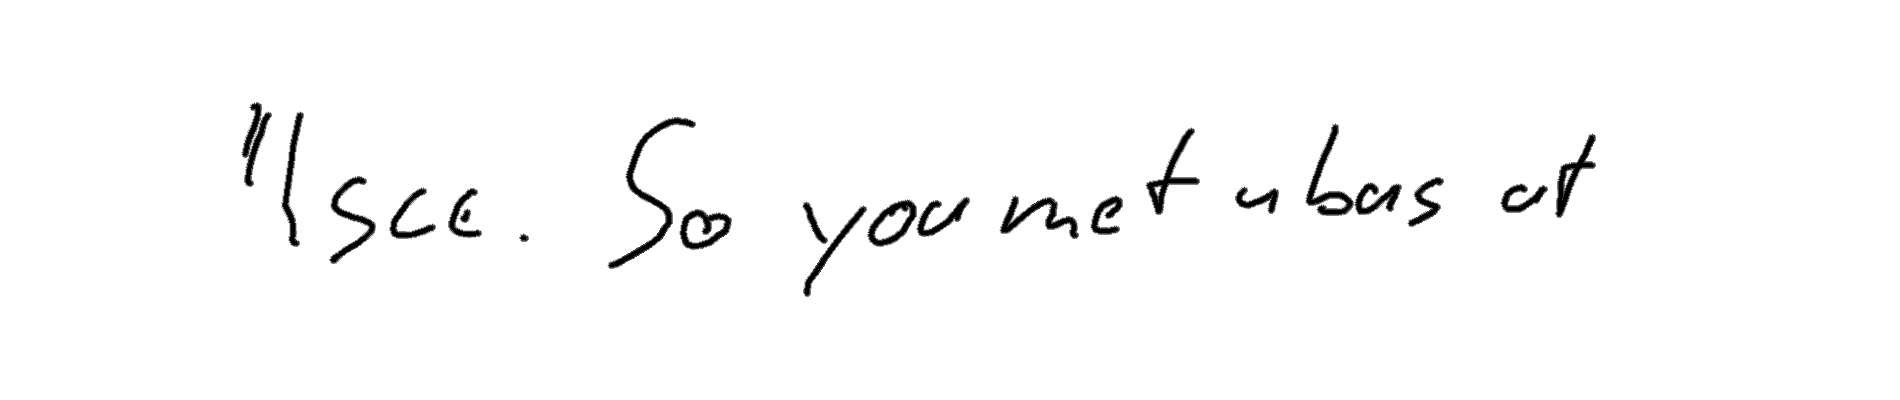 "I see. So you met ubas at